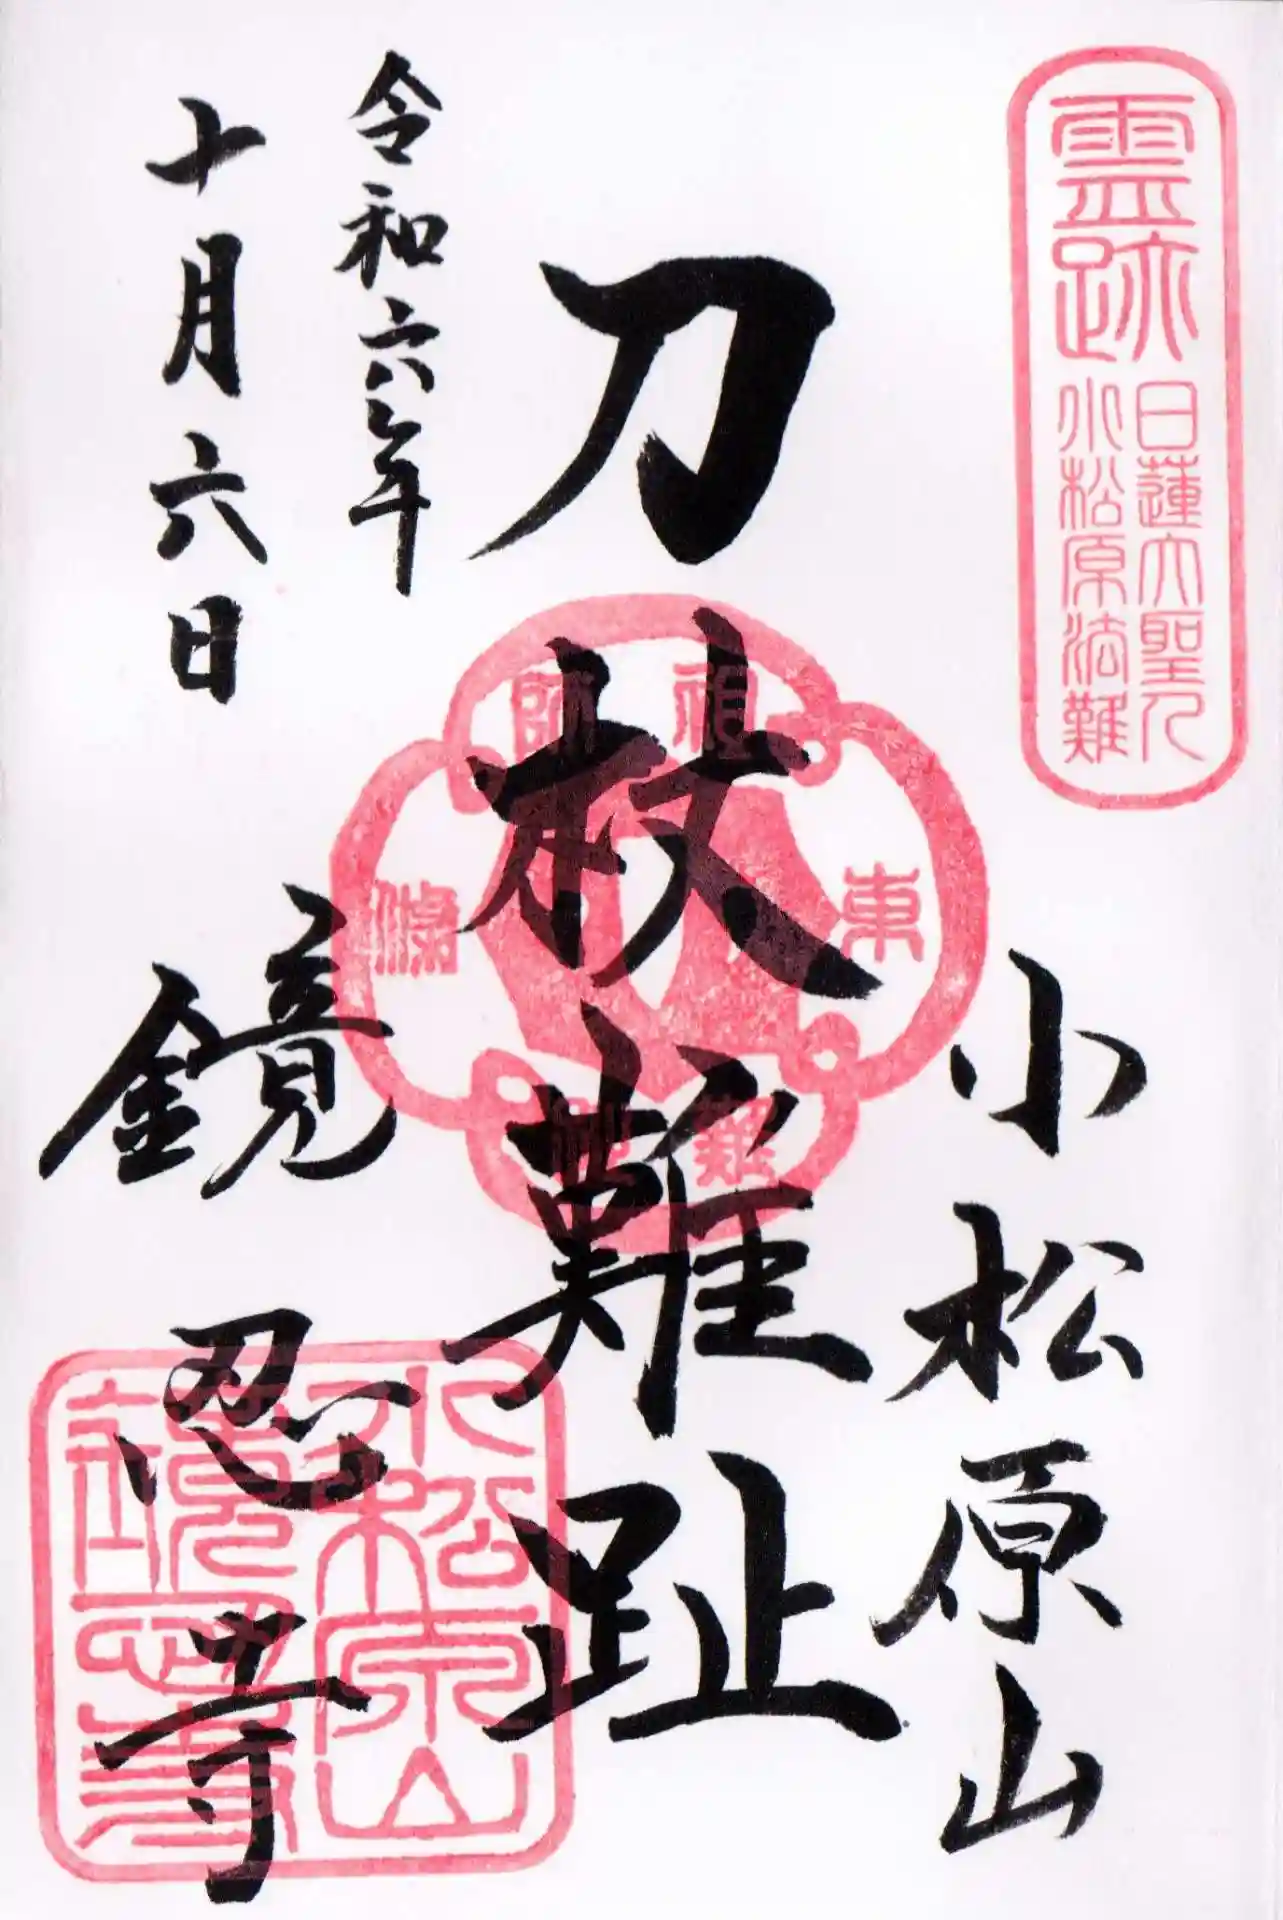 霊跡
日蓮大聖人
小松原法難
小松原山
刀杖難趾
令和六年
十月六日
鏡忍寺
東
條
祖師
小松原山
鏡忍寺